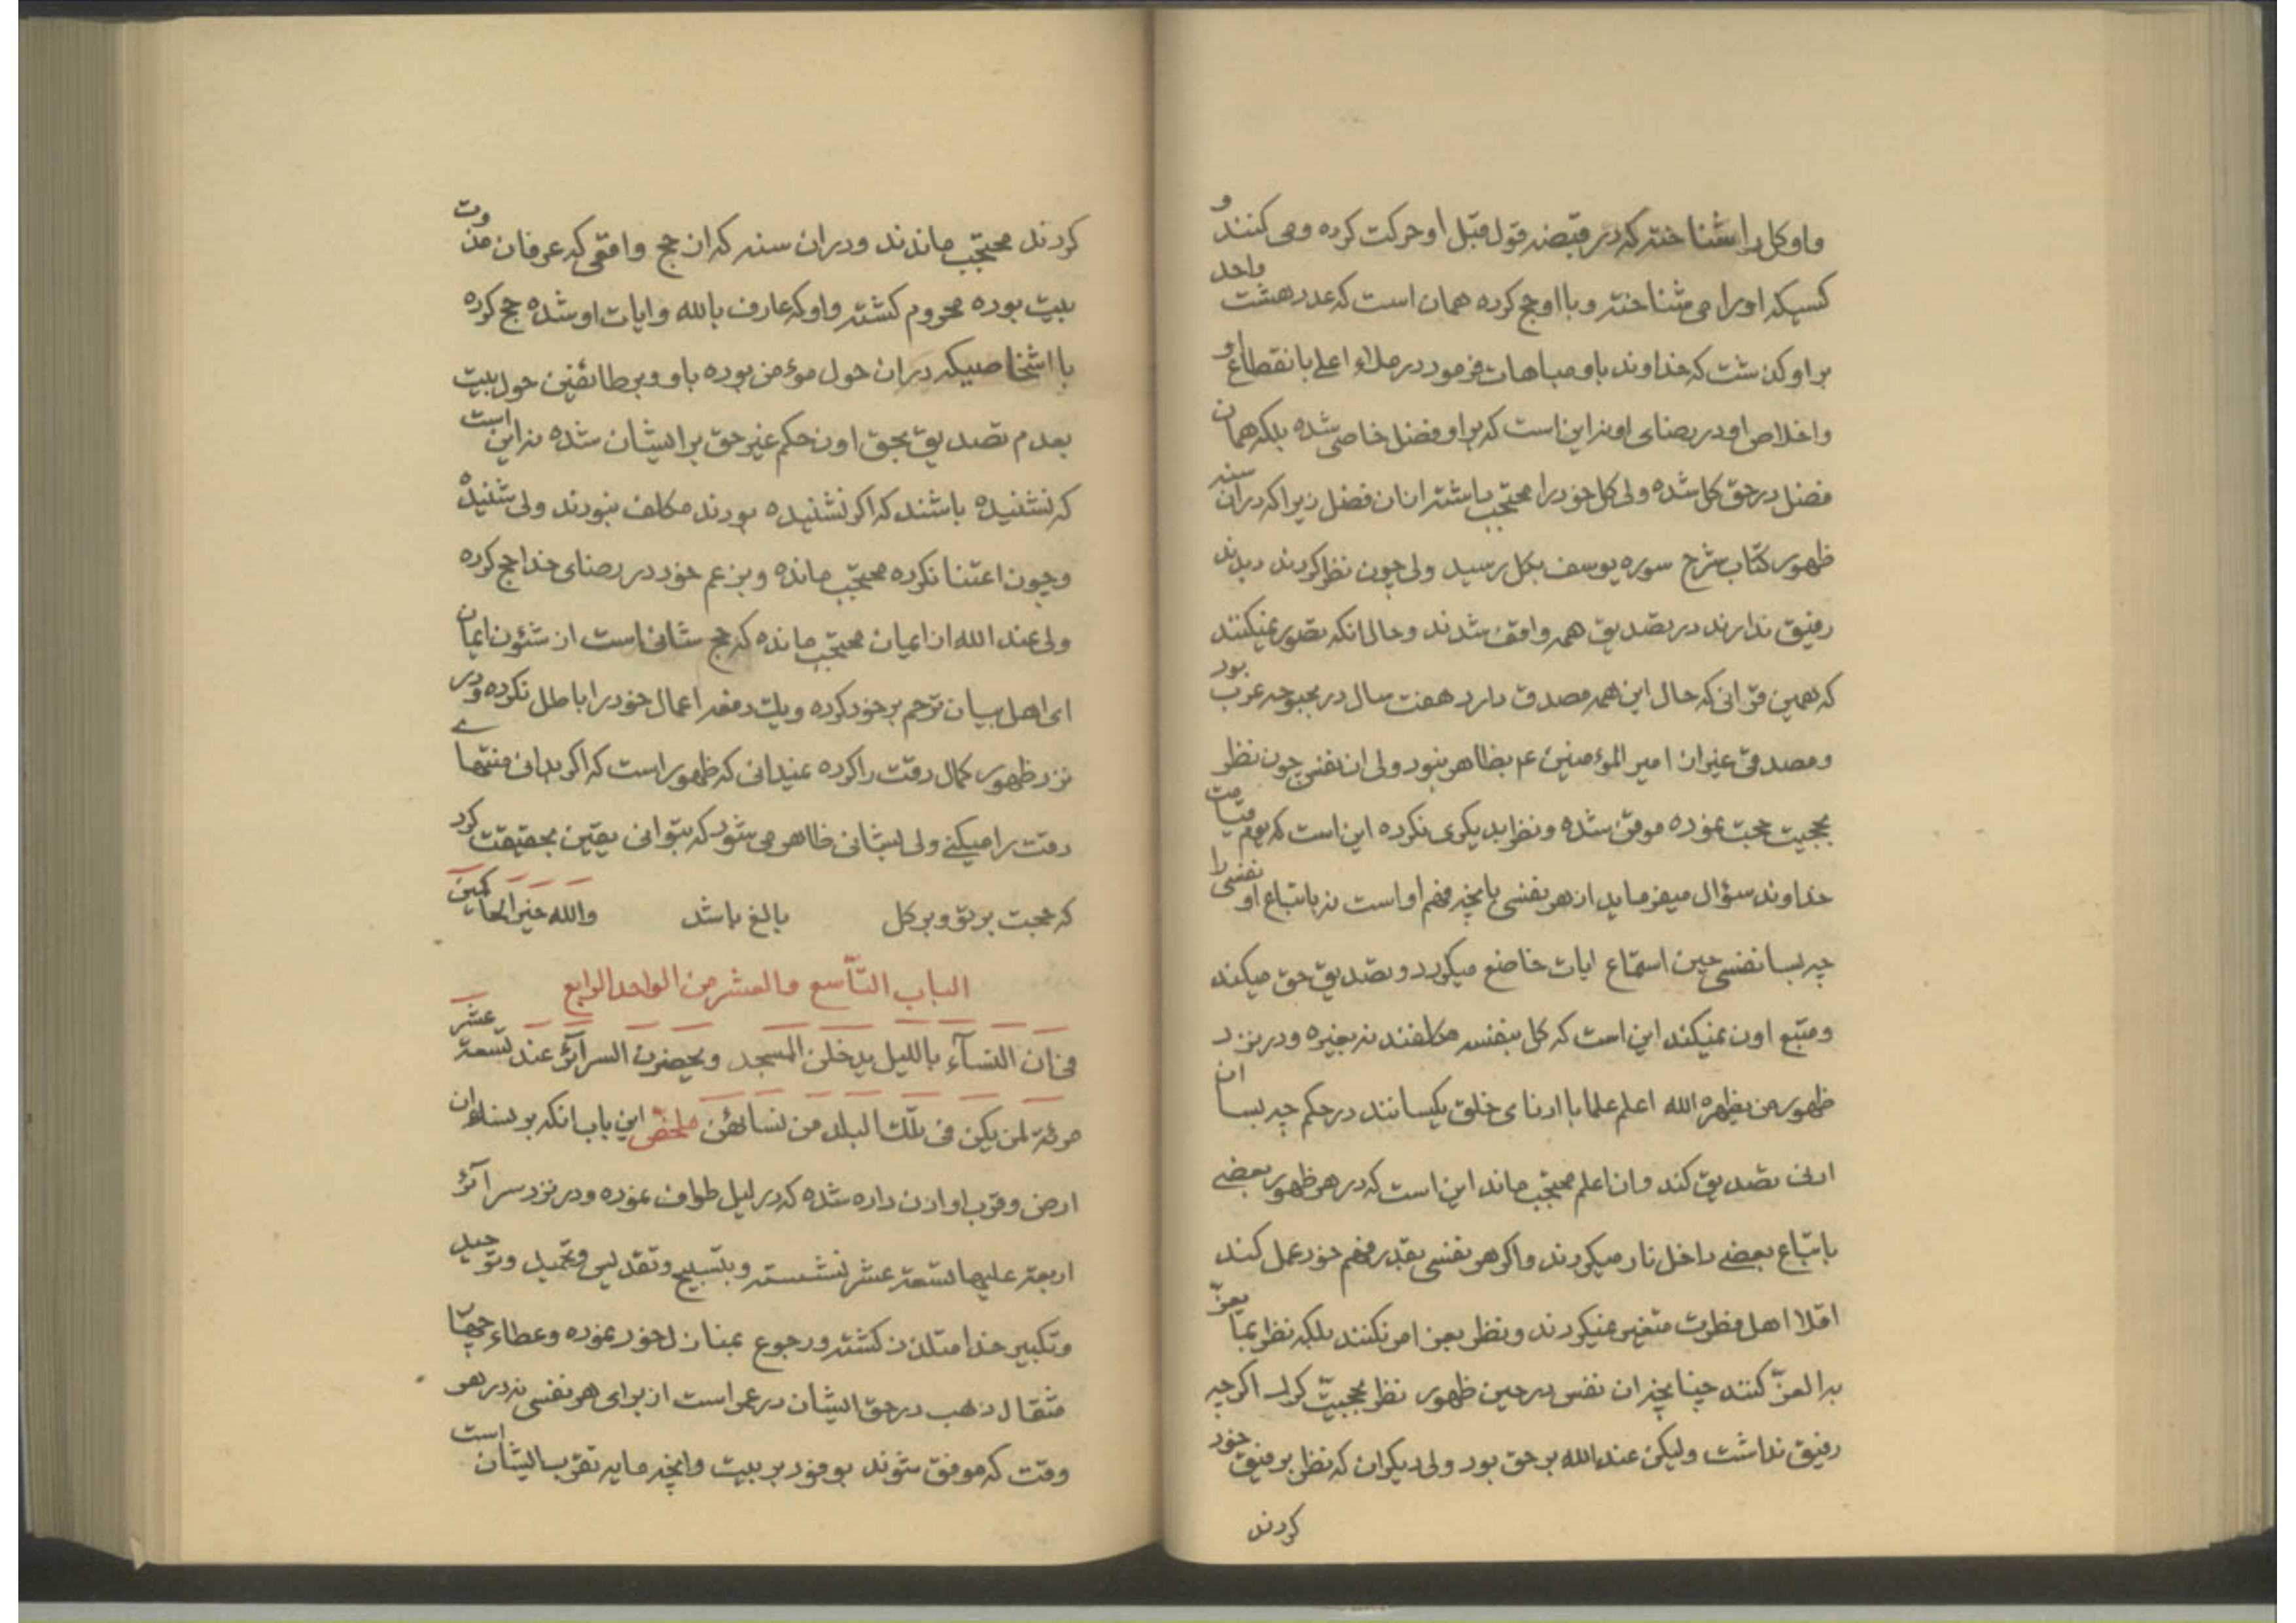 و او کل را شناخته که در قبضه قول قبل او حرکت کرده و می کنند و
کسیکه او را می شناخته و با او حج کرده همان است که عدد هشت واحد
بر او گذشت که خداوند باو مباهات فرمود در ملاء اعلی بانقطاع او
و اخلاص او در رضای او نه این است که بر او فضل خاصی شده بلکه همان
فضل در حق کل شده ولی کل خود را محتجب داشته از ان فضل زیرا که در ان سنه
ظهور کتاب شرح سوره یوسف بکل رسید ولی چون نظر کردند دیدند
رفیق ندارند در تصدیق همه واقف شدند و حال انکه تصور نمیکنند
که همین قرانی که حال این همه مصدق دارد هفت سال در بحبوحه عرب بود
و مصدقی غیر از امیر المؤمنین ع م بظاهر نبود ولی ان نفس چون نظر
بحجیت حجت نموده موقن شده و نظر بدیگری نکرده این است که یوم قیامت
خداوند سؤال میفرماید از هر نفسی بانچه فهم او است نه باتباع او نفسی را
چه بسا نفسی حین استماع ایات خاضع میگردد و تصدیق حق میکند
و متبع او نمیکند این است که کل بنفسه مکلفند نه بغیره و در نزد
ظهور من یظهره الله اعلم علما با ادنای خلق یکسانند در حکم چه بسا ان
ادنی تصدیق کند و ان اعلم محتجب ماند این است که در هر ظهور بعضی
باتباع بعضی داخل نار میگردند و اگر هر نفسی بقدر فهم خود عمل کند
اقلا اهل فطرت متغیر نمیگردند و نظر بعز امر نکنند بلکه نظر بما یعز
به العز کنند چنانچه ان نفس در حین ظهور نظر بحجیت کرد اگر چه
رفیق نداشت ولیکن عند الله بر حق بود ولی دیگران که نظر بر فیق خود
کردند
کردند محتجب ماندند و در ان سنه که از حج واقعی که عرفان من وت
بیت بوده محروم گشته و او که عارف بالله و ایات او شده حج کرده
با اشخاصیکه در ان حول مؤمن بوده باو و بر طائفین حول بیت
بعدم تصدیق بحق او حکم غیر حق بر ایشان شده نه این است
که نشنیده باشند که اگر نشنیده بودند مکلف نبودند ولی شنیده
و چون اعتنا نکرده محتجب مانده و بزعم خود در رضای خدا حج کرده
ولی عند الله از ایمان محتجب مانده که حج شانی است از شئون ایمان
ای اهل بیان ترحم بر خود کرده و یک دفعه اعمال خود را باطل نکرده و در
نزد ظهور کمال دقت را کرده نمیدانی که ظهور است که اگر بدانی منتهای
دقت را میکنی ولی بشانی ظاهر می شود که بتوانی یقین بحقیقت کرد
که حجت بر تو و بر کل بالغ باشد والله خیر الحاکمین
الباب التاسع والعشر من الواحد الرابع
فی ان النسآء باللیل یدخلن المسجد و یحضرن السرآئر عند تسعة عشر
مرئة لمن یکن فی تلک البلد من نسائهن ملخص این باب انکه بر نساء ان
ارض و قرب او اذن داده شده که در لیل طواف نموده و در نزد سرآئر
اربعه علیها تسعة عشر نشسته و بتسبیح و تقدیس و تحمید و توحید
و تکبیر خدا متلذذ گشته و رجوع بمنازل خود نموده و عطاء چهار
مثقال ذهب در حق ایشان در عمر است از برای هر نفسی نه در هر
وقت که موفق شوند بوفود بر بیت و انچه مایه تقرب ایشان است